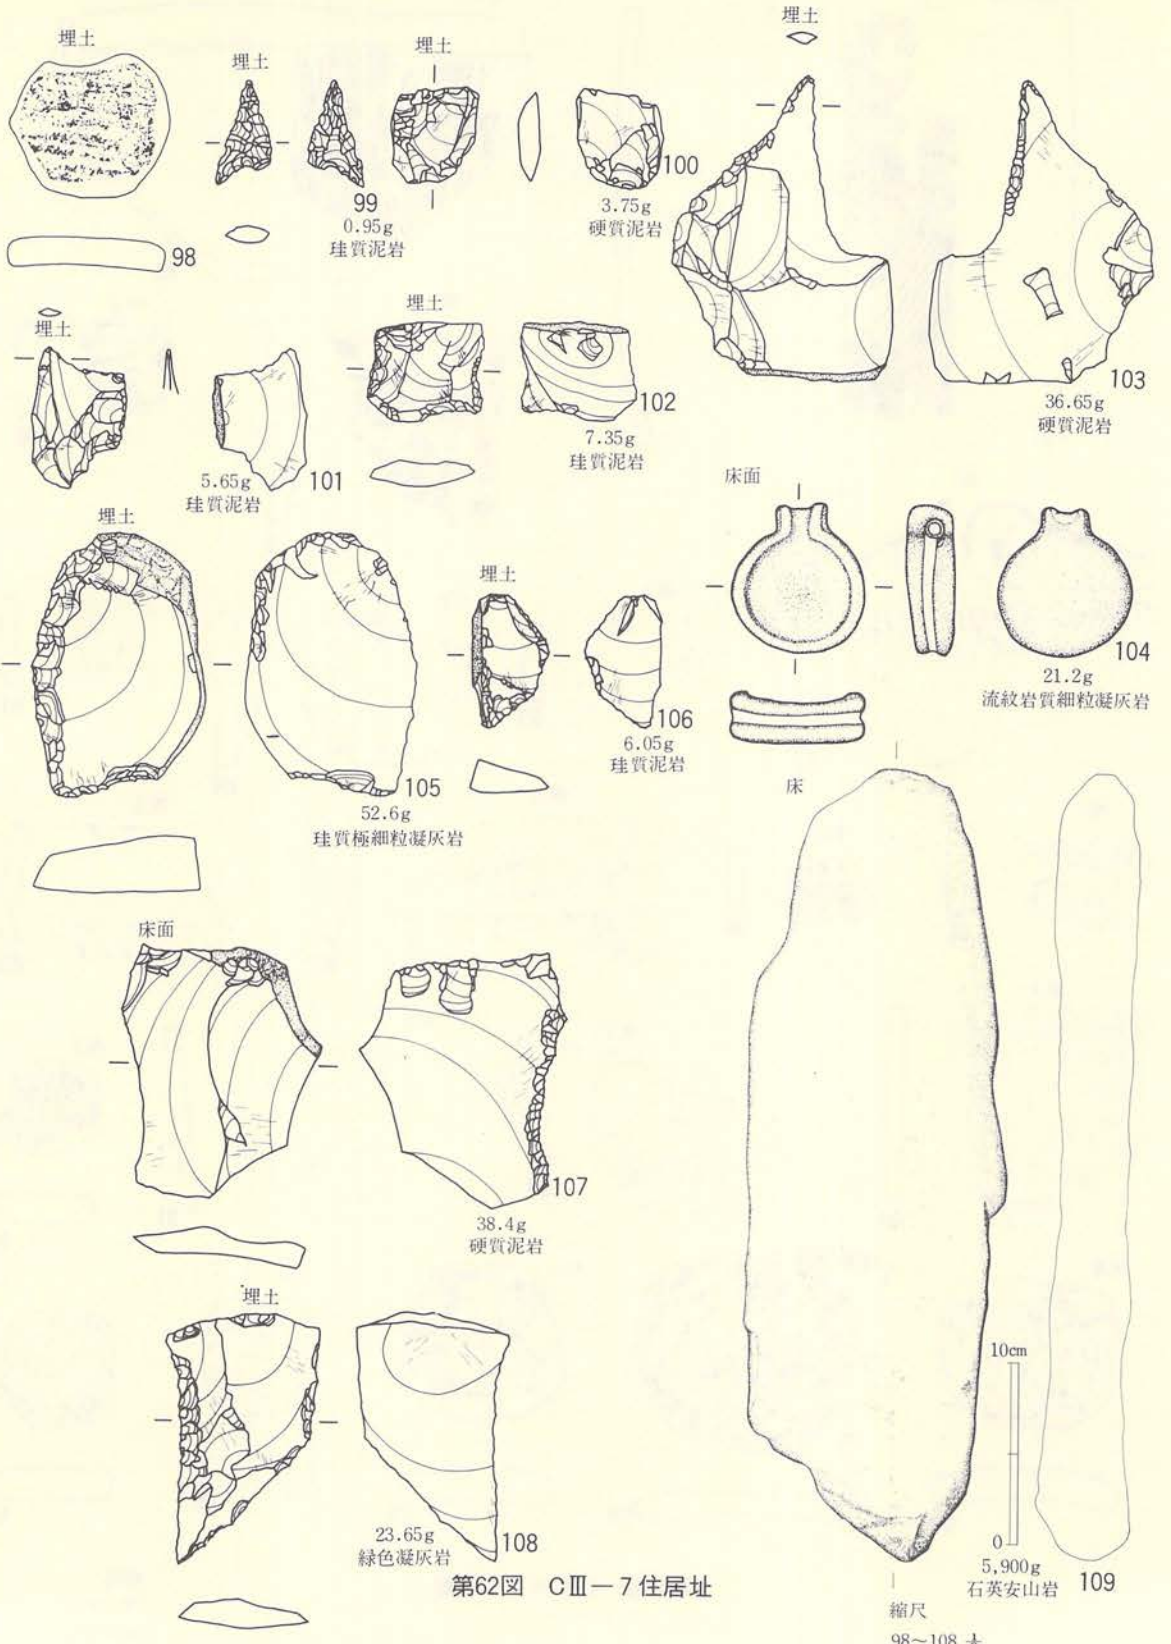 埋土
98
埋土
99
0.95g
珪質泥岩
埋土
100
3.75g
硬質泥岩
埋土
103
36.65g
硬質泥岩
埋土
101
5.65g
珪質泥岩
埋土
102
7.35g
珪質泥岩
床面
104
21.2g
流紋岩質細粒凝灰岩
埋土
105
52.6g
珪質極細粒凝灰岩
埋土
106
6.05g
珪質泥岩
床面
107
38.4g
硬質泥岩
埋土
108
23.65g
緑色凝灰岩
床
10cm
0
5,900g
石英安山岩
109
第62図 CⅢ―7住居址
縮尺
98~108